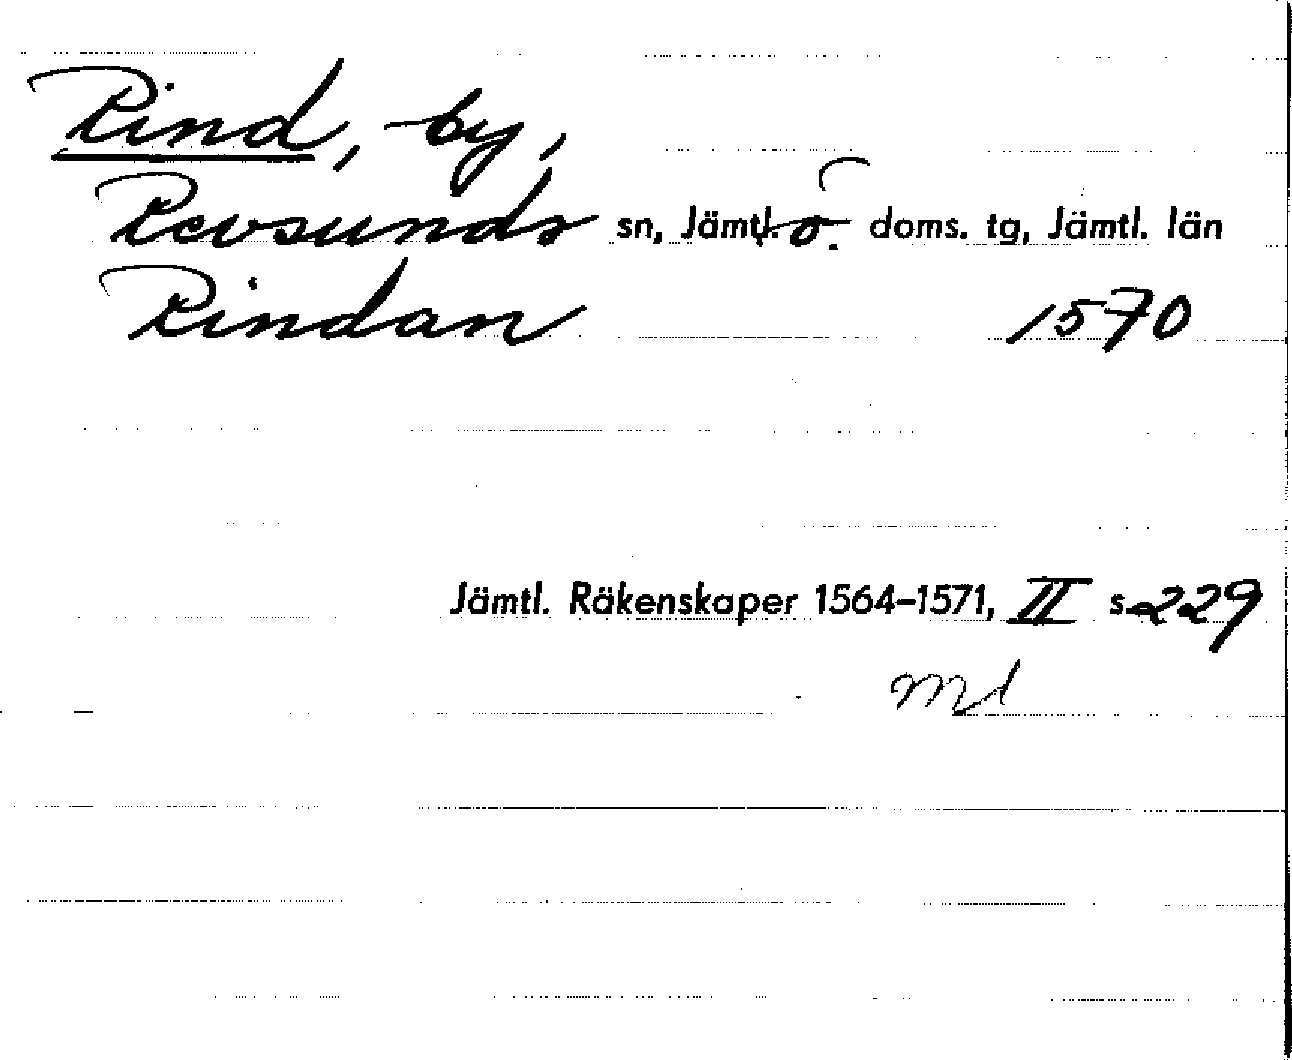 Rind, by,
Revsunds sn, Jämtl. ö. doms. tg, Jämtl. län
Rindan 1570
Jämtl. Räkenskaper 1564–1571, II s 229